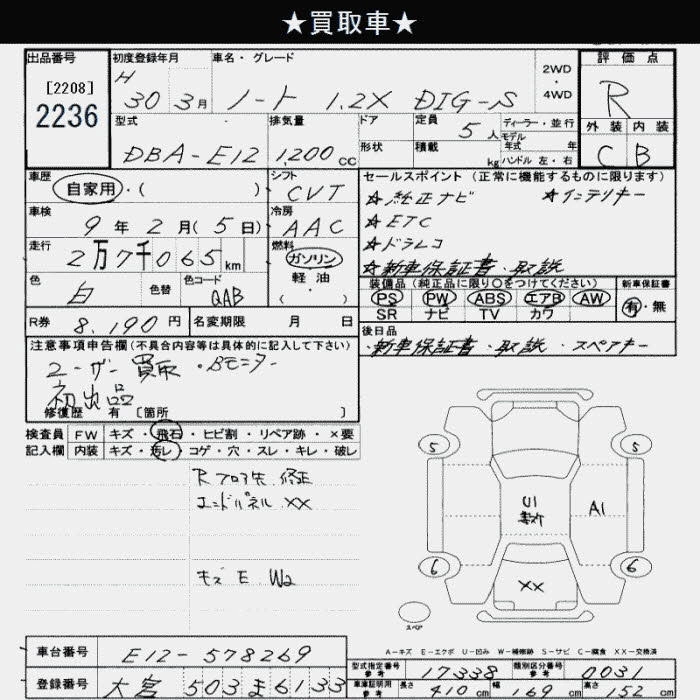 ★買取車★
出品番号
[2208]
2236
初度登録年月
H
30 3月
車名・グレード
ノート 1.2X DIG-S
2WD
・
4WD
評価点
R
外装 内装
C B
型式
DBA-E12
排気量
1,200 CC
ドア
形状
定員
5 人
積載
kg
ディーラー・並行
モデル
年式 年
ハンドル 左・右
車歴
自家用・( )
シフト
CVT
車検
9年 2月(5日)
冷房
AAC
走行
2万7千065km
燃料
ガソリン
軽油
( )
色
白
色替
色コード
QAB
R券
8,190円
名変期限 月 日
セールスポイント(正常に機能するものに限ります)
☆純正ナビ ☆インテリキー
☆ETC
☆ドラレコ
☆新車保証書・取説
装備品(純正品に限り○をつけてください)
PS PW ABS エアB AW
SR ナビ TV カワ
新車保証書
有・無
後日品
・新車保証書・取説・スペアキー
注意事項申告欄(不具合内容等は具体的に記入して下さい)
ユーザー買取 ・Bモニター
初出品
修復歴 有 [箇所 ]
検査員
記入欄
FW キズ・飛石・ヒビ割・リペア跡・×要
内装 キズ・汚レ・コゲ・穴・スレ・キレ・破レ
Rフロア先 修正
エンドパネル XX
キズ E W2
5
5
U1
A1
6
6
XX
スペア
A-キズ E-エクボ U-凹み W-補修跡 S-サビ C-腐食 XX-交換済
車台番号
E12-578269
登録番号
大宮 503ま6133
型式指定番号
参考
17338
類別区分番号
参考
0031
車庫証明用
参考
長さ 410cm
幅 169cm
高さ 152cm